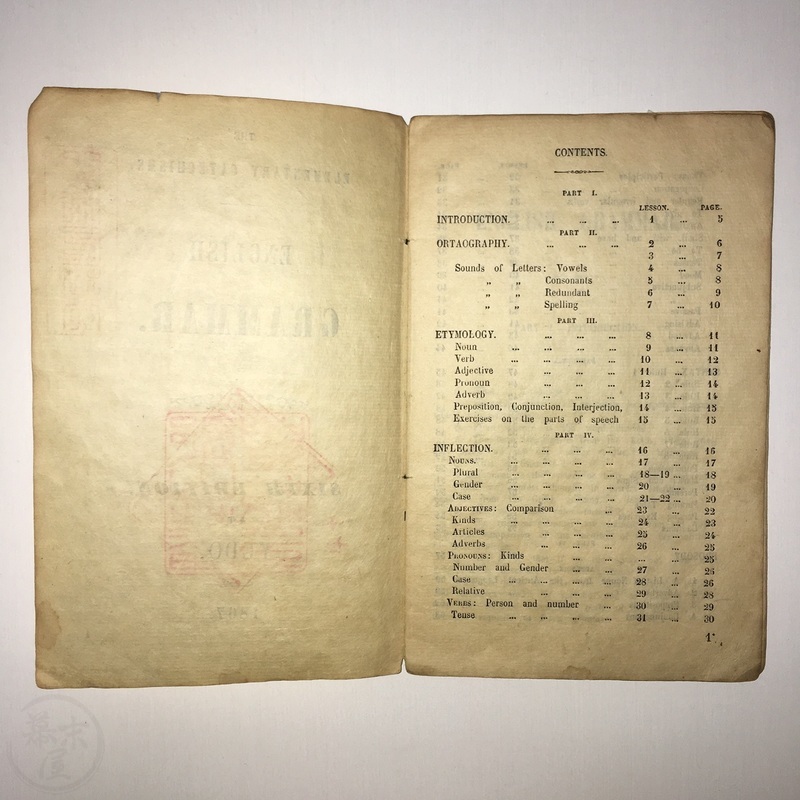 CONTENTS.
PART I.
LESSON. PAGE.
INTRODUCTION. ... ... ... 1 ... 5
PART II.
ORTAOGRAPHY. ... ... ... 2 ... 6
3 ... 7
Sounds of Letters: Vowels 4 ... 8
„ „ Consonants 5 ... 8
„ „ Redundant 6 ... 9
„ „ Spelling 7 ... 10
PART III.
ETYMOLOGY. ... ... ... 8 ... 11
Noun ... ... ... ... 9 ... 11
Verb ... ... ... ... 10 ... 12
Adjective ... ... ... 11 ... 13
Pronoun ... ... ... 12 ... 14
Adverb ... ... ... 13 ... 14
Preposition, Conjunction, Interjection, 14 ... 15
Exercises on the parts of speech 15 ... 15
PART IV.
INFLECTION. ... ... ... 16 ... 16
NOUNS. ... ... ... ... 17 ... 17
Plural ... ... ... ... 18—19 ... 18
Gender ... ... ... ... 20 ... 19
Case ... ... ... ... 21—22 ... 20
ADJECTIVES: Comparison ... 23 ... 22
Kinds ... ... ... ... 24 ... 23
Articles ... ... ... 25 ... 24
Adverbs ... ... ... 26 ... 25
PRONOUNS: Kinds ... ... ... ... 25
Number and Gender ... ... 27 ... 25
Case ... ... ... ... 28 ... 26
Relative ... ... ... 29 ... 28
VERBS: Person and number ... 30 ... 29
Tense ... ... ... ... 31 ... 30
1*
幕末屋